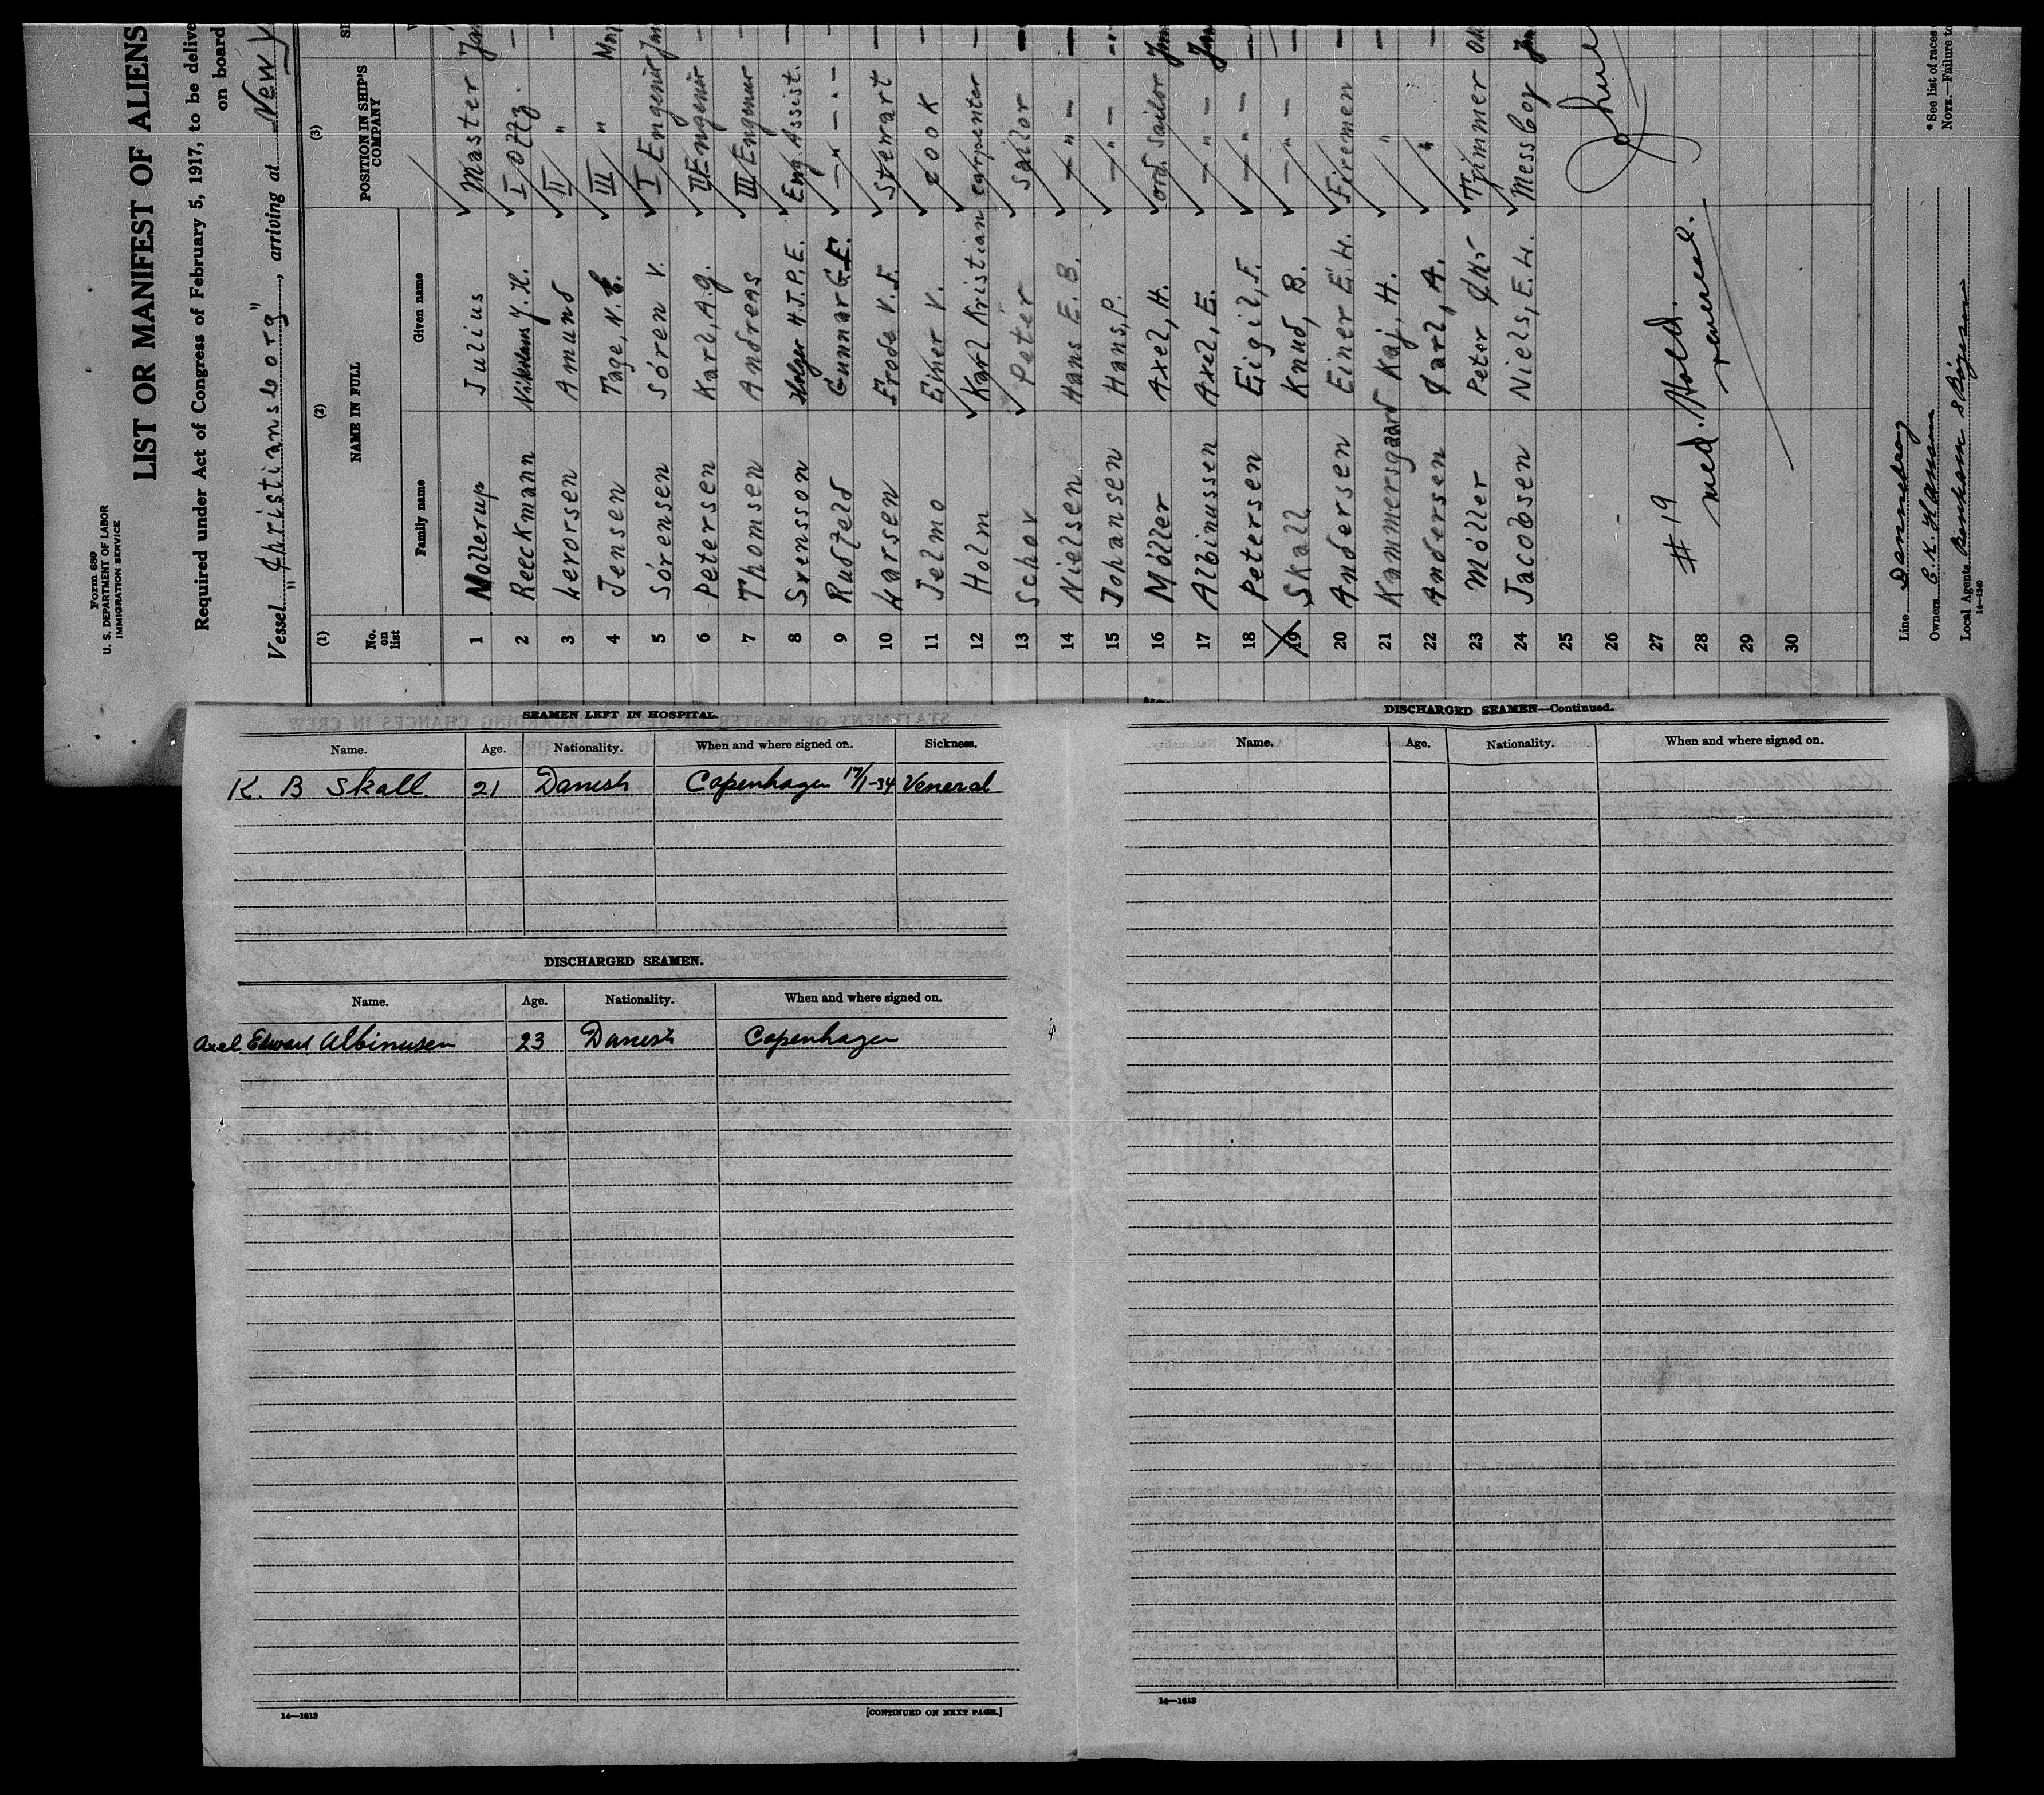 Form 680
U. S. DEPARTMENT OF LABOR
IMMIGRATION SERVICE
LIST OR MANIFEST OF ALIENS
Required under Act of Congress of February 5, 1917, to be delive
on board
Vessel "Christiansborg", arriving at New Y
(1) (2) (3)
No. on list NAME IN FULL POSITION IN SHIP'S COMPANY
Family name Given name
1 Mollerup Julius Master Jan
2 Reeckmann Nikolaus J. H. I Offz.
3 Lerorsen Amund II "
4 Jensen Tage, N. III "
5 Sörensen Sören V. I Engenür Jan
6 Petersen Karl, A.G. II Engenür
7 Thomsen Andreas III Engenür
8 Svensson Holger H.J.P.E. Eng Assist.
9 Rudfeld Gunnar G.F. — " —
10 Larsen Frode V. F. Stewart
11 Jelmo Einer V. cook
12 Holm Karl Kristian carpenter
13 Schov Peter Sailor
14 Nielsen Hans E. B. — " —
15 Johansen Hans, P. — " —
16 Möller Axel, H. ord. Sailor
17 Albinussen Axel, E. — " —
18 Petersen Eigil, F. — " —
19 Skall Knud, B. — " —
20 Andersen Einer E. H. Firemen
21 Kammersgaard Kaj, H. "
22 Andersen Carl, A. "
23 Möller Peter Chr Trimmer
24 Jacobsen Niels, E. H. Messboy
25
26
27
28
29
30
# 19 Hold.
med. venereal.
Line Dannebrog
Owners C. K. Hansen
Local Agents
14—1240
*See list of races
NOTE.—Failure to
SEAMEN LEFT IN HOSPITAL.
Name. Age. Nationality. When and where signed on. Sickness.
K. B Skall. 21 Danesh Copenhagen 17/1-34 Veneral
DISCHARGED SEAMEN.
Name. Age. Nationality. When and where signed on.
Axel Edward Albinusen 23 Danesh Copenhagen
14—1613
[CONTINUED ON NEXT PAGE.]
DISCHARGED SEAMEN—Continued.
Name. Age. Nationality. When and where signed on.
14—1613